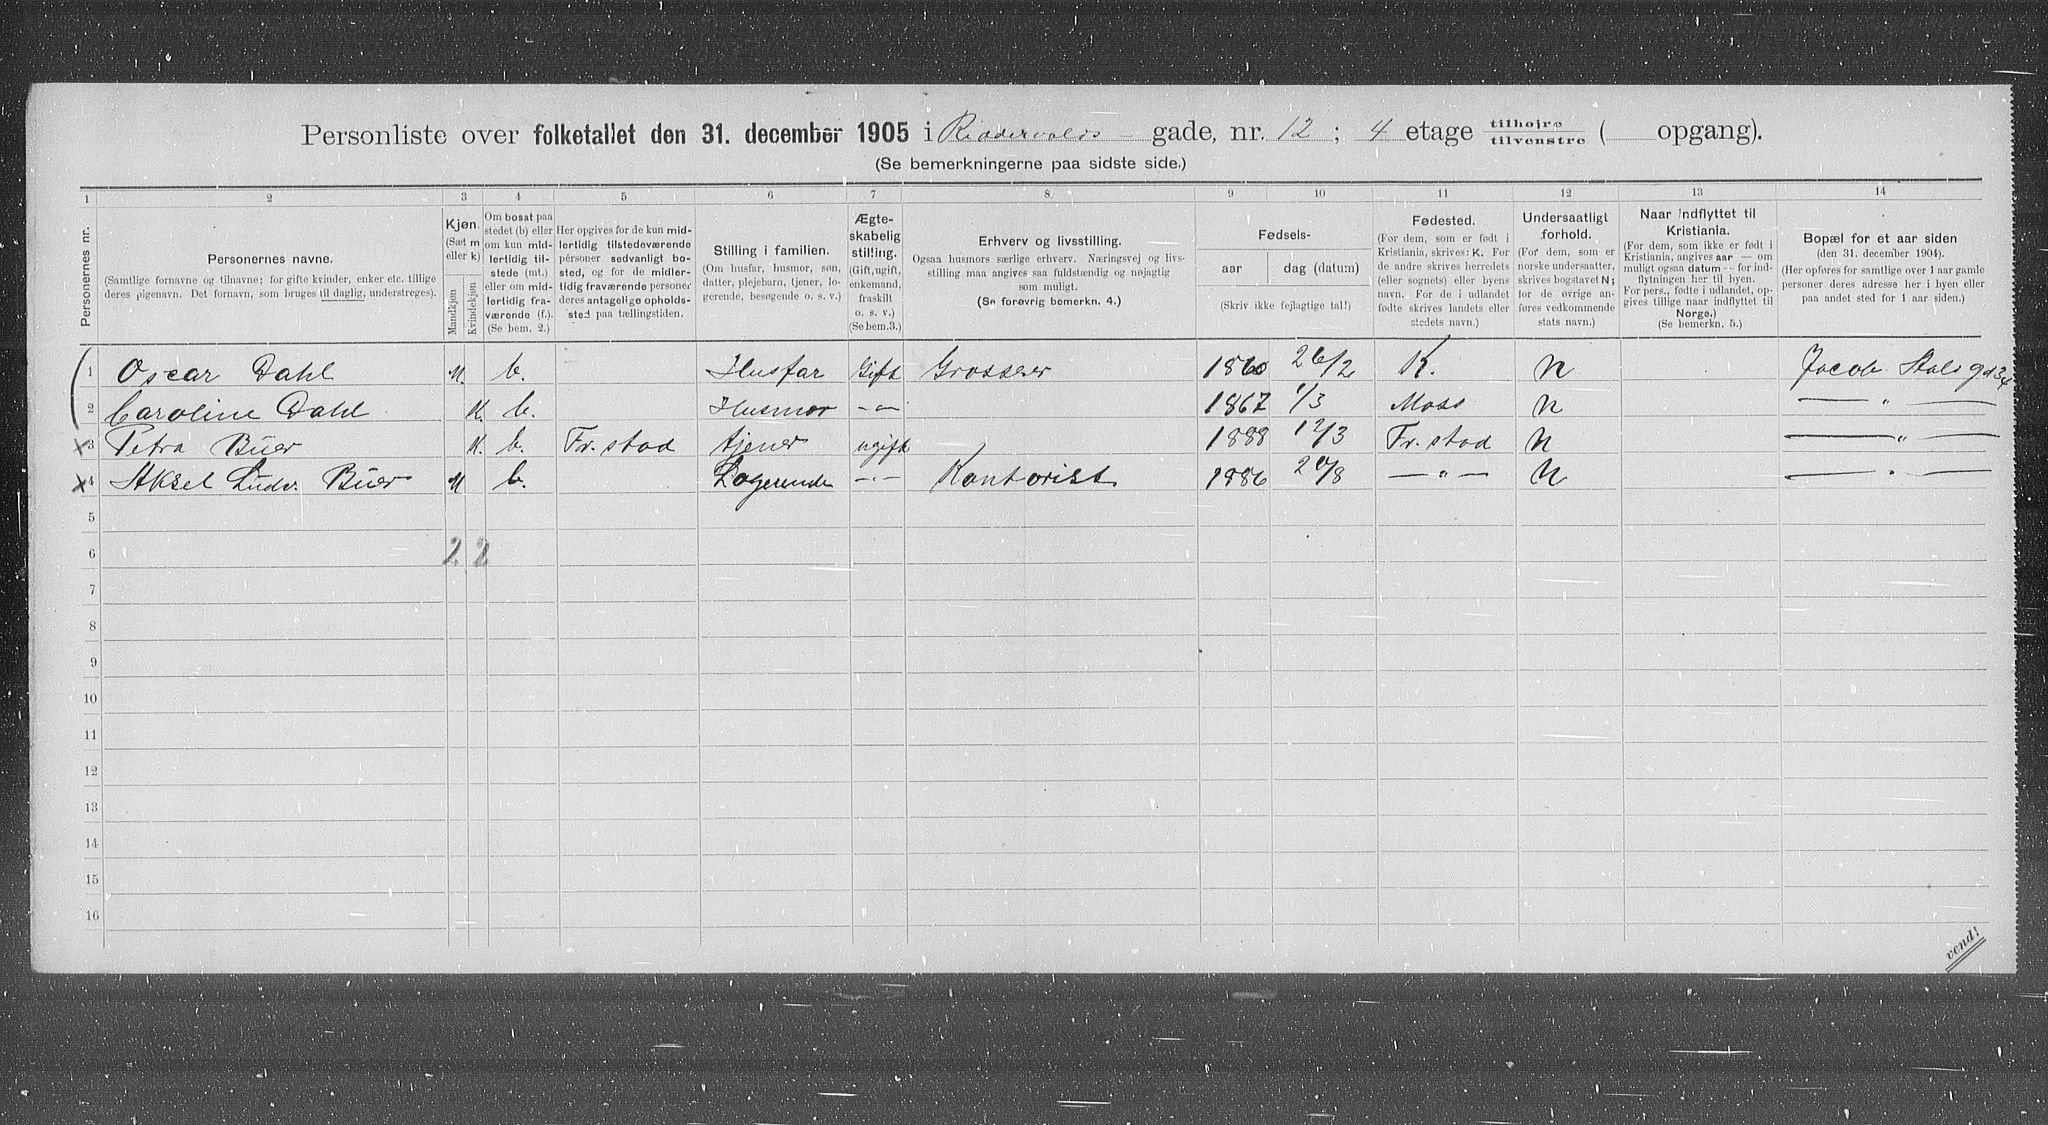 Personliste over folketallet den 31. december 1905 i Riddervolds - gade, nr. 12 ; 4 etage tilhøjre tilvenstre ( opgang).
(Se bemerkningerne paa sidste side.)
1 2 3 4 5 6 7 8. 9 10 11 12 13 14
Personernes nr.
Personernes navne.
(Samtlige fornavne og tilnavne; for gifte kvinder, enker etc. tillige deres pigenavn. Det fornavn, som bruges til daglig, understreges).
Kjøn.
(Sæt m eller k)
Mandkjøn
Kvindekjøn
Om bosat paa stedet (b) eller om kun midlertidig tilstede (mt.) eller om midlertidig fraværende (f.). (Se bem. 2.)
Her opgives for de kun midlertidig tilstedeværende personer sedvanligt bosted, og for de midlertidig fraværende personer deres antagelige opholdssted paa tællingstiden.
Stilling i familien.
(Om husfar, husmor, søn, datter, plejebarn, tjener, logerende, besøgende o. s. v.)
Ægteskabelig stilling.
(Gift, ugift, enkemand, fraskilt o. s. v.)
(Se bem.3.)
Erhverv og livsstilling.
Ogsaa husmors særlige erhverv. Næringsvej og livsstilling maa angives saa fuldstændig og nøjagtig som muligt.
(Se forøvrig bemerkn. 4.)
Fødsels-
aar
dag (datum)
(Skriv ikke fejlagtige tal!)
Fødested.
(For dem, som er født i Kristiania, skrives: K. For de andre skrives herredets (eller sognets) eller byens navn. For de i udlandet fødte skrives landets eller stedets navn.)
Undersaatligt forhold.
(For dem, som er norske undersaatter, skrives bogstavet N; for de øvrige anføres vedkommende stats navn.)
Naar indflyttet til Kristiania.
(For dem, som ikke er født i Kristiania, angives aar — om muligt ogsaa datum — for indflytningen her til byen. For pers., fødte i udlandet, opgives tillige naar indflyttet til Norge.)
(Se bemerkn. 5.)
Bopæl for et aar siden
(den 31. december 1904).
(Her opføres for samtlige over 1 aar gamle personer deres adresse her i byen eller paa andet sted for 1 aar siden.)
1 Oscar Dahl M. b. Husfar Gift Grosserer 1860 26/2 K. N Jacob Aalls gd 34
2 Caroline Dahl K. b. Husmor -"- 1867 1/3 Moss N — " —
x 3 Petra Büer K. b. Fr. stad tjener ugift 1888 12/3 Fr. stad N — " —
x 4 Aksel Ludv. Büer M b. Logerende -"- Kontorist 1886 20/8 — " — N — " —
5
6 2 2
7
8
9
10
11
12
13
14
15
16
vend!